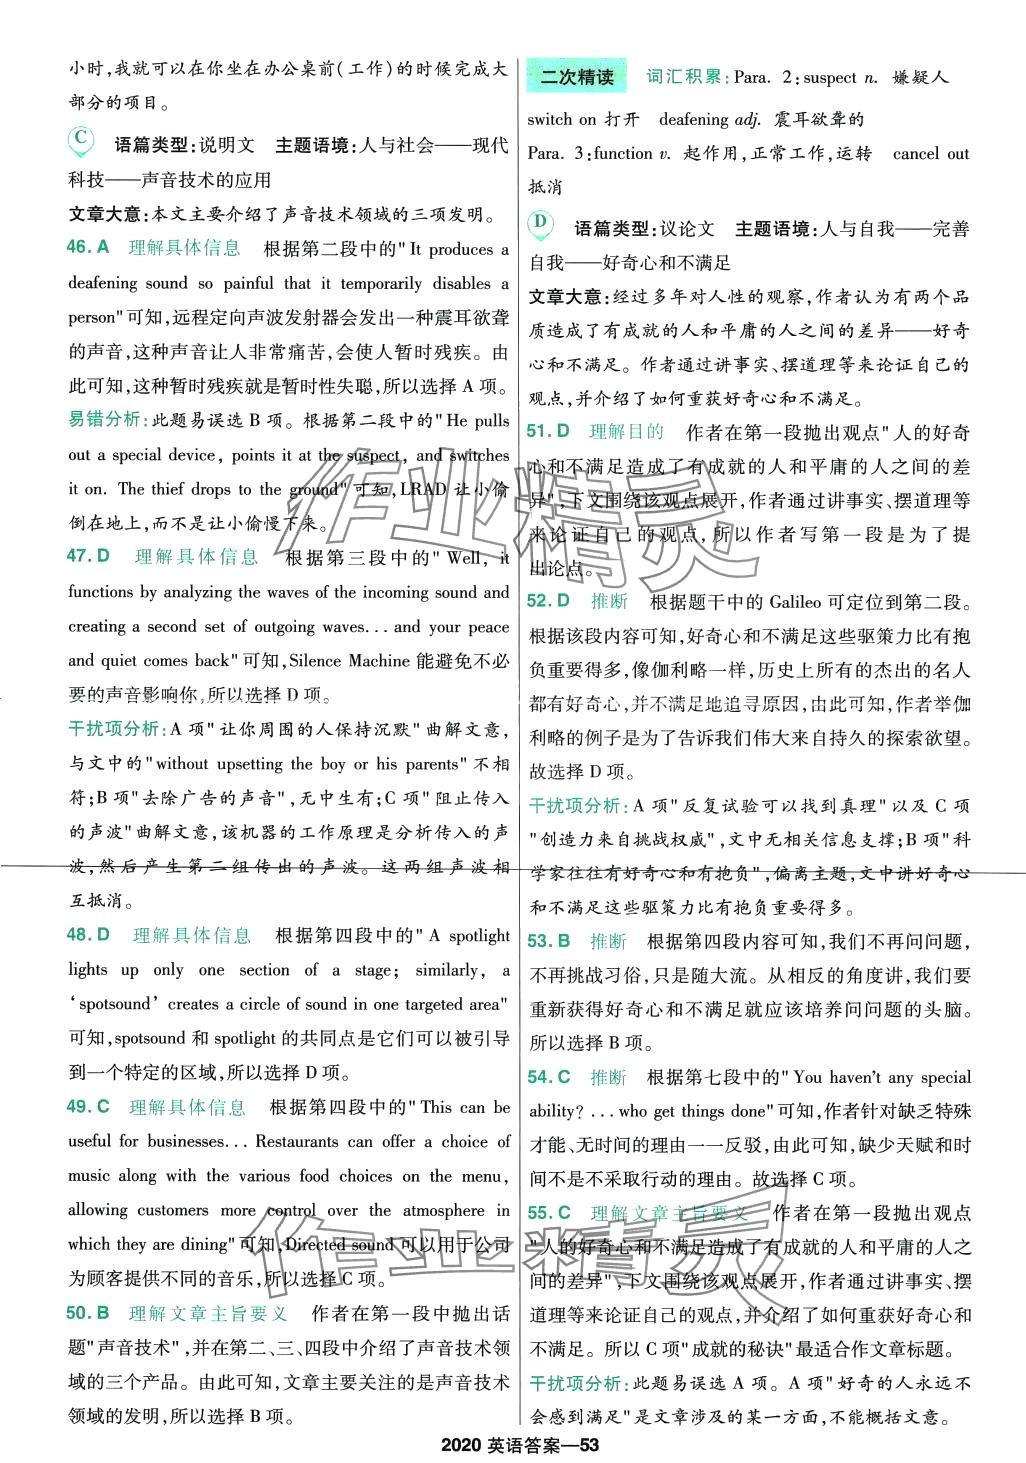 小时,我就可以在你坐在办公桌前(工作)的时候完成大
部分的项目。
C 语篇类型:说明文 主题语境:人与社会——现代
科技——声音技术的应用
文章大意:本文主要介绍了声音技术领域的三项发明。
46. A 理解具体信息 根据第二段中的"It produces a
deafening sound so painful that it temporarily disables a
person"可知,远程定向声波发射器会发出一种震耳欲聋
的声音,这种声音让人非常痛苦,会使人暂时残疾。由
此可知,这种暂时残疾就是暂时性失聪,所以选择 A 项。
易错分析:此题易误选 B 项。根据第二段中的"He pulls
out a special device, points it at the suspect, and switches
it on. The thief drops to the ground"可知,LRAD 让小偷
倒在地上,而不是让小偷慢下来。
47. D 理解具体信息 根据第三段中的"Well, it
functions by analyzing the waves of the incoming sound and
creating a second set of outgoing waves... and your peace
and quiet comes back"可知,Silence Machine 能避免不必
要的声音影响你,所以选择 D 项。
干扰项分析:A 项"让你周围的人保持沉默"曲解文意,
与文中的"without upsetting the boy or his parents"不相
符;B 项"去除广告的声音",无中生有;C 项"阻止传入
的声波"曲解文意,该机器的工作原理是分析传入的声
波,然后产生第二组传出的声波。这两组声波相
互抵消。
48. D 理解具体信息 根据第四段中的"A spotlight
lights up only one section of a stage; similarly, a
'spotsound' creates a circle of sound in one targeted area"
可知,spotsound 和 spotlight 的共同点是它们可以被引导
到一个特定的区域,所以选择 D 项。
49. C 理解具体信息 根据第四段中的"This can be
useful for businesses... Restaurants can offer a choice of
music along with the various food choices on the menu,
allowing customers more control over the atmosphere in
which they are dining"可知,Directed sound 可以用于公司
为顾客提供不同的音乐,所以选择 C 项。
50. B 理解文章主旨要义 作者在第一段中抛出话
题"声音技术",并在第二、三、四段中介绍了声音技术领
域的三个产品。由此可知,文章主要关注的是声音技术
领域的发明,所以选择 B 项。
二次精读 词汇积累:Para. 2:suspect n. 嫌疑人
switch on 打开 deafening adj. 震耳欲聋的
Para. 3:function v. 起作用,正常工作,运转 cancel out
抵消
D 语篇类型:议论文 主题语境:人与自我——完善
自我——好奇心和不满足
文章大意:经过多年对人性的观察,作者认为有两个品
质造成了有成就的人和平庸的人之间的差异——好奇
心和不满足。作者通过讲事实、摆道理等来论证自己的
观点,并介绍了如何重获好奇心和不满足。
51. D 理解目的 作者在第一段抛出观点"人的好奇
心和不满足造成了有成就的人和平庸的人之间的差
异",下文围绕该观点展开,作者通过讲事实、摆道理等
来论证自己的观点,所以作者写第一段是为了提
出论点。
52. D 推断 根据题干中的 Galileo 可定位到第二段。
根据该段内容可知,好奇心和不满足这些驱策力比有抱
负重要得多,像伽利略一样,历史上所有的杰出的名人
都有好奇心,并不满足地追寻原因,由此可知,作者举伽
利略的例子是为了告诉我们伟大来自持久的探索欲望。
故选择 D 项。
干扰项分析:A 项"反复试验可以找到真理"以及 C 项
"创造力来自挑战权威",文中无相关信息支撑;B 项"科
学家往往有好奇心和有抱负",偏离主题,文中讲好奇心
和不满足这些驱策力比有抱负重要得多。
53. B 推断 根据第四段内容可知,我们不再问问题,
不再挑战习俗,只是随大流。从相反的角度讲,我们要
重新获得好奇心和不满足就应该培养问问题的头脑。
所以选择 B 项。
54. C 推断 根据第七段中的"You haven't any special
ability? ...who get things done"可知,作者针对缺乏特殊
才能、无时间的理由一一反驳,由此可知,缺少天赋和时
间不是不采取行动的理由。故选择 C 项。
55. C 理解文章主旨要义 作者在第一段抛出观点
"人的好奇心和不满足造成了有成就的人和平庸的人之
间的差异",下文围绕该观点展开,作者通过讲事实、摆
道理等来论证自己的观点,并介绍了如何重获好奇心和
不满足。所以 C 项"成就的秘诀"最适合作文章标题。
干扰项分析:此题易误选 A 项。A 项"好奇的人永远不
会感到满足"是文章涉及的某一方面,不能概括文意。
2020 英语答案—53
作业精灵
作业精灵